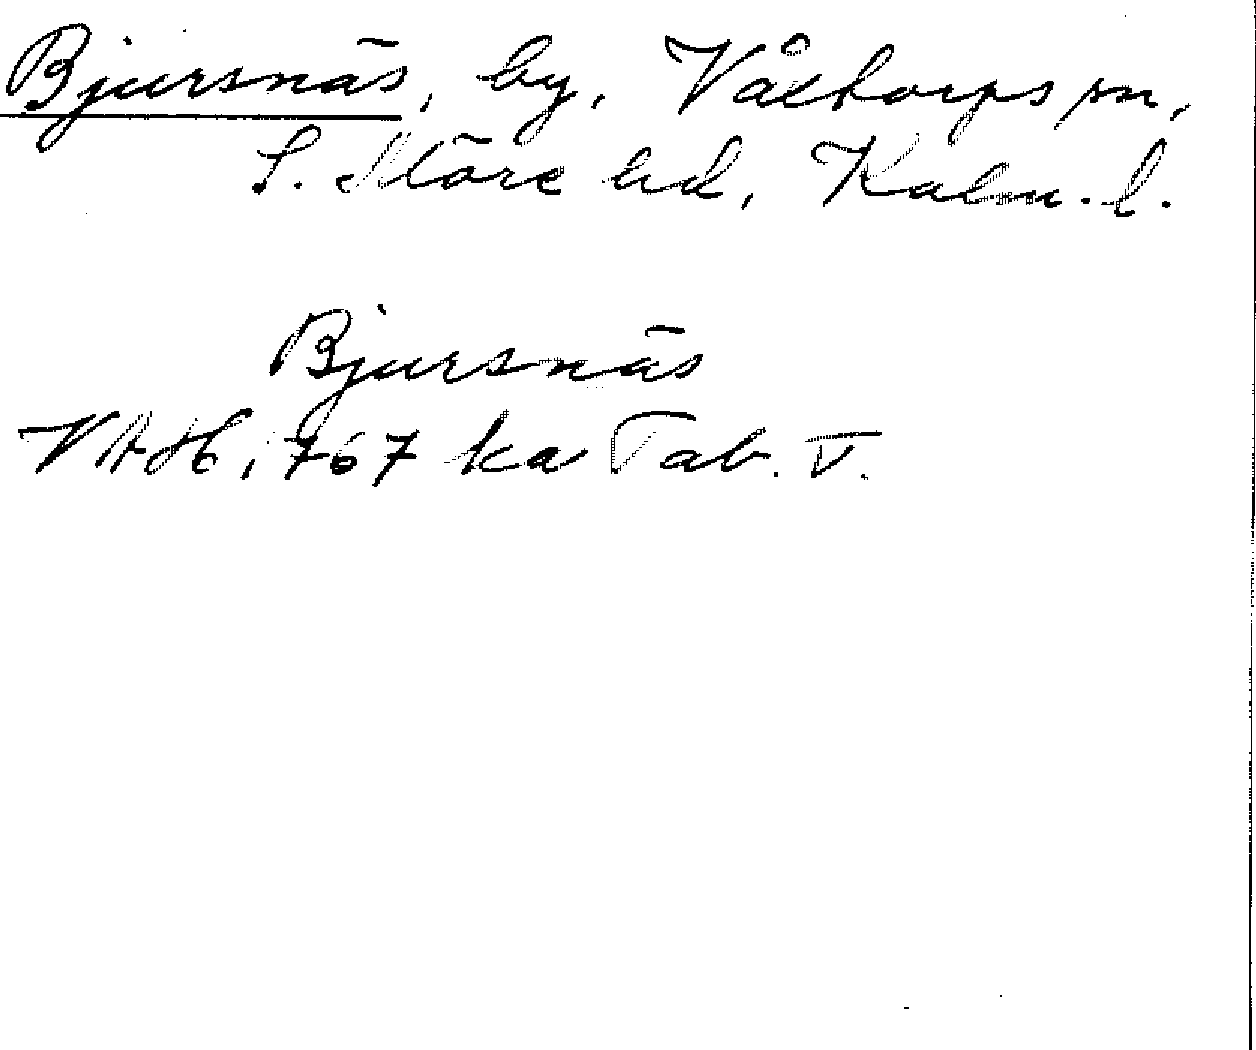 Bjursnäs, by, Våxtorps sn,
S. Möre hd, Kalm. l.
Bjursnäs
VAH, 767 ka Tab. V.